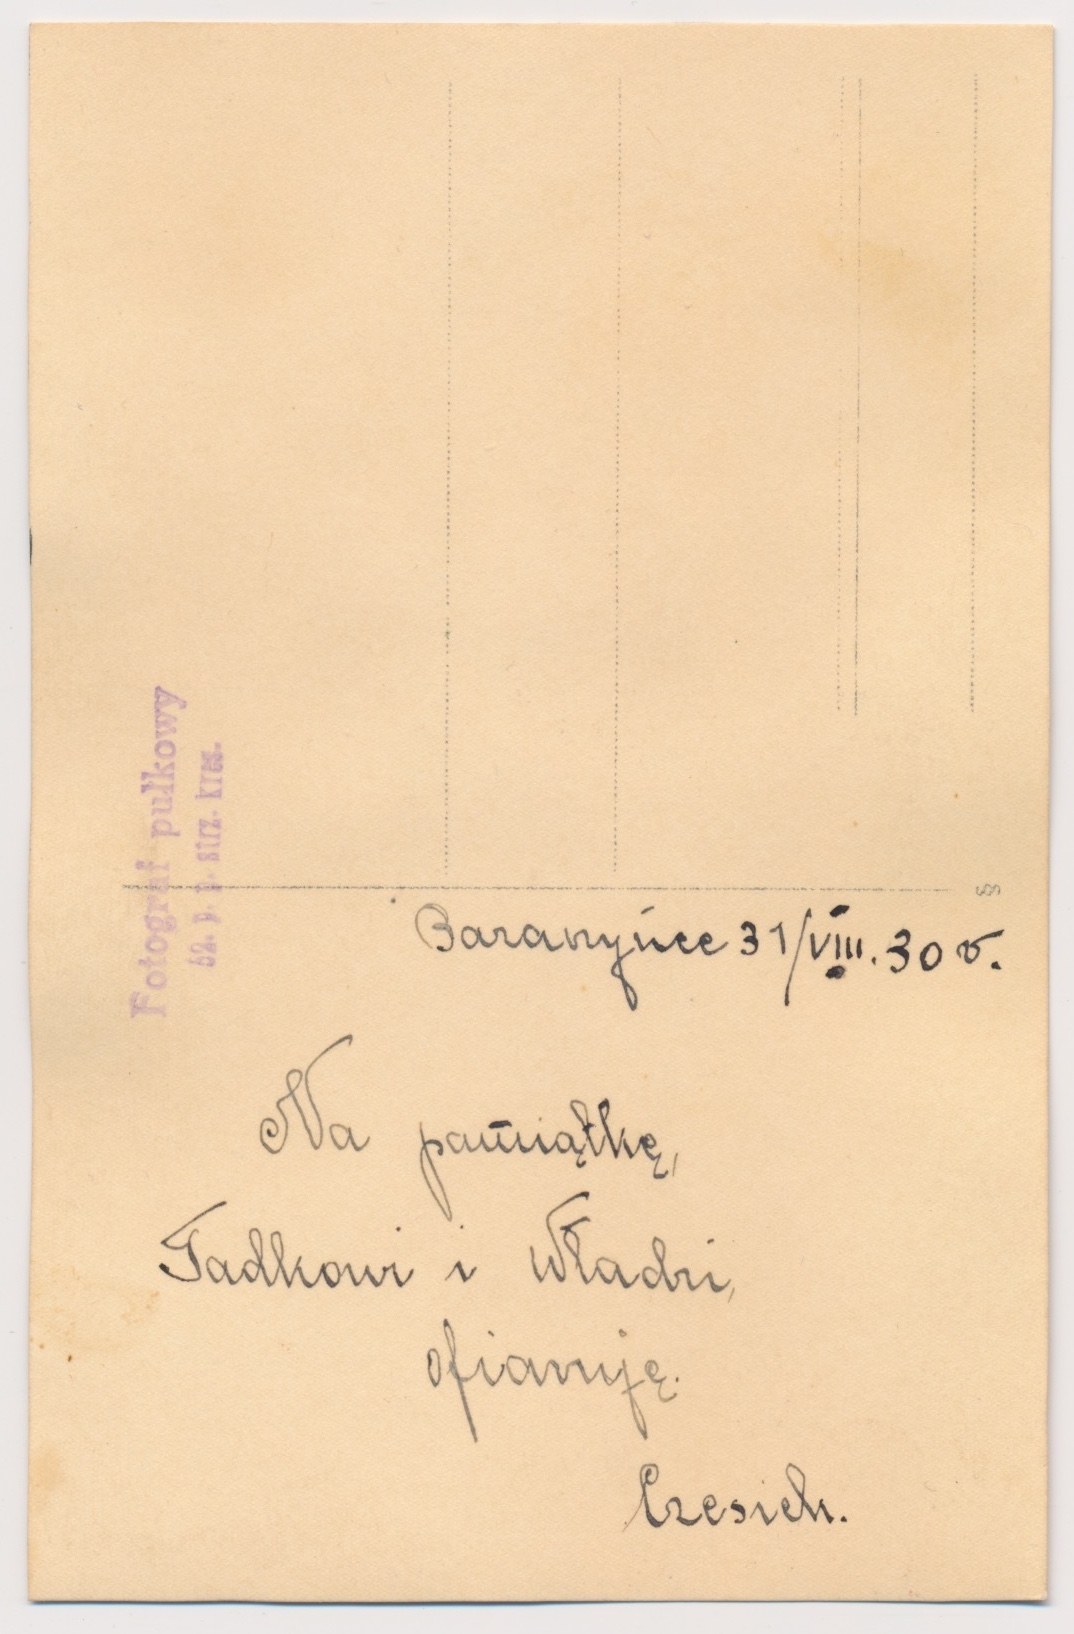 Fotograf pułkowy
52. p. p. strz. kres.
Baranyńce 31/VIII. 30 r.
Na pamiątkę,
Tadkowi i Władzi,
ofiaruję.
Czesiek.